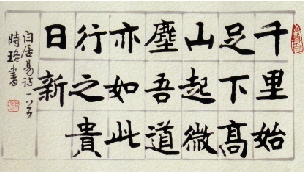 千里始
足下高
山起微
塵吾道
亦如此
行之貴
日新
白居易诗一首
書